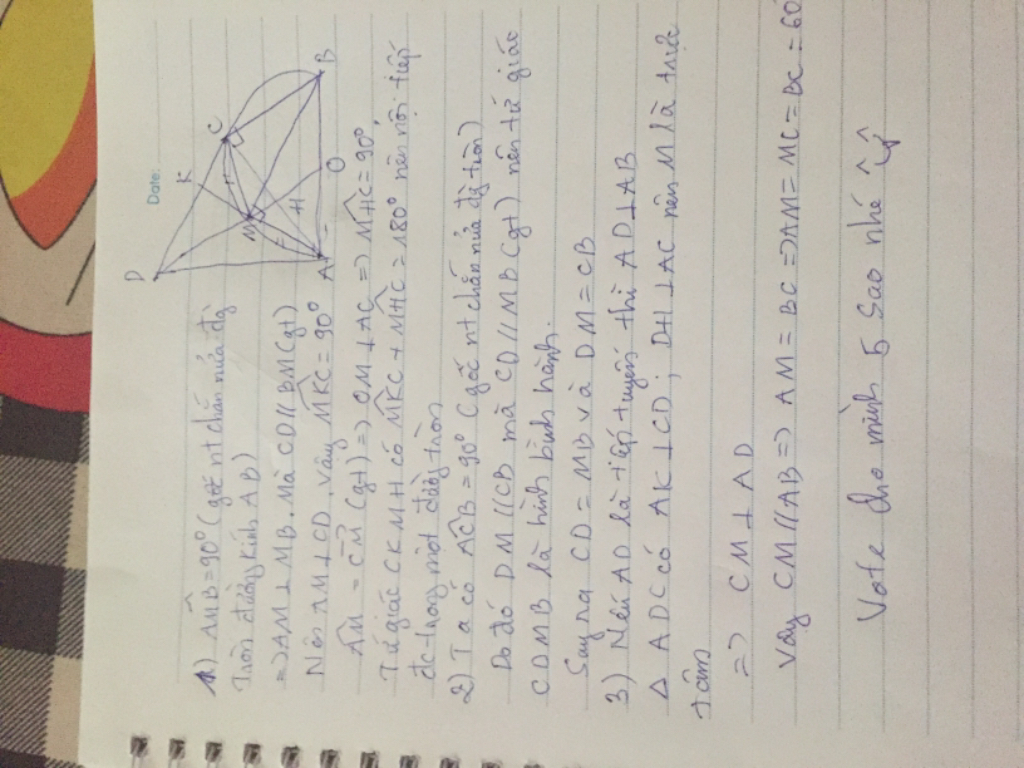 Date:
D
K
C
M
H
A
O
B
1) AMB = 90° (góc nt chắn nửa đg
tròn đường kính AB)
=> AM ⊥ MB. Mà CD // BM (gt)
Nên AM ⊥ CD. Vậy MKC = 90°
AM = CM (gt) => OM ⊥ AC => MHC = 90°
Tứ giác CKMH có MKC + MHC = 180° nên nội tiếp
đc trong một đường tròn
2) Ta có ACB = 90° (góc nt chắn nửa đg tròn)
Do đó DM // CB mà CD // MB (gt) nên tứ giác
CDMB là hình bình hành.
Suy ra CD = MB và DM = CB
3) Nếu AD là tiếp tuyến thì AD ⊥ AB
Δ ADC có AK ⊥ CD; DH ⊥ AC nên M là trực
tâm
=> CM ⊥ AD
Vậy CM // AB => AM = BC => AM = MC = BC = 60°
Vote cho mình 5 sao nhé ^^